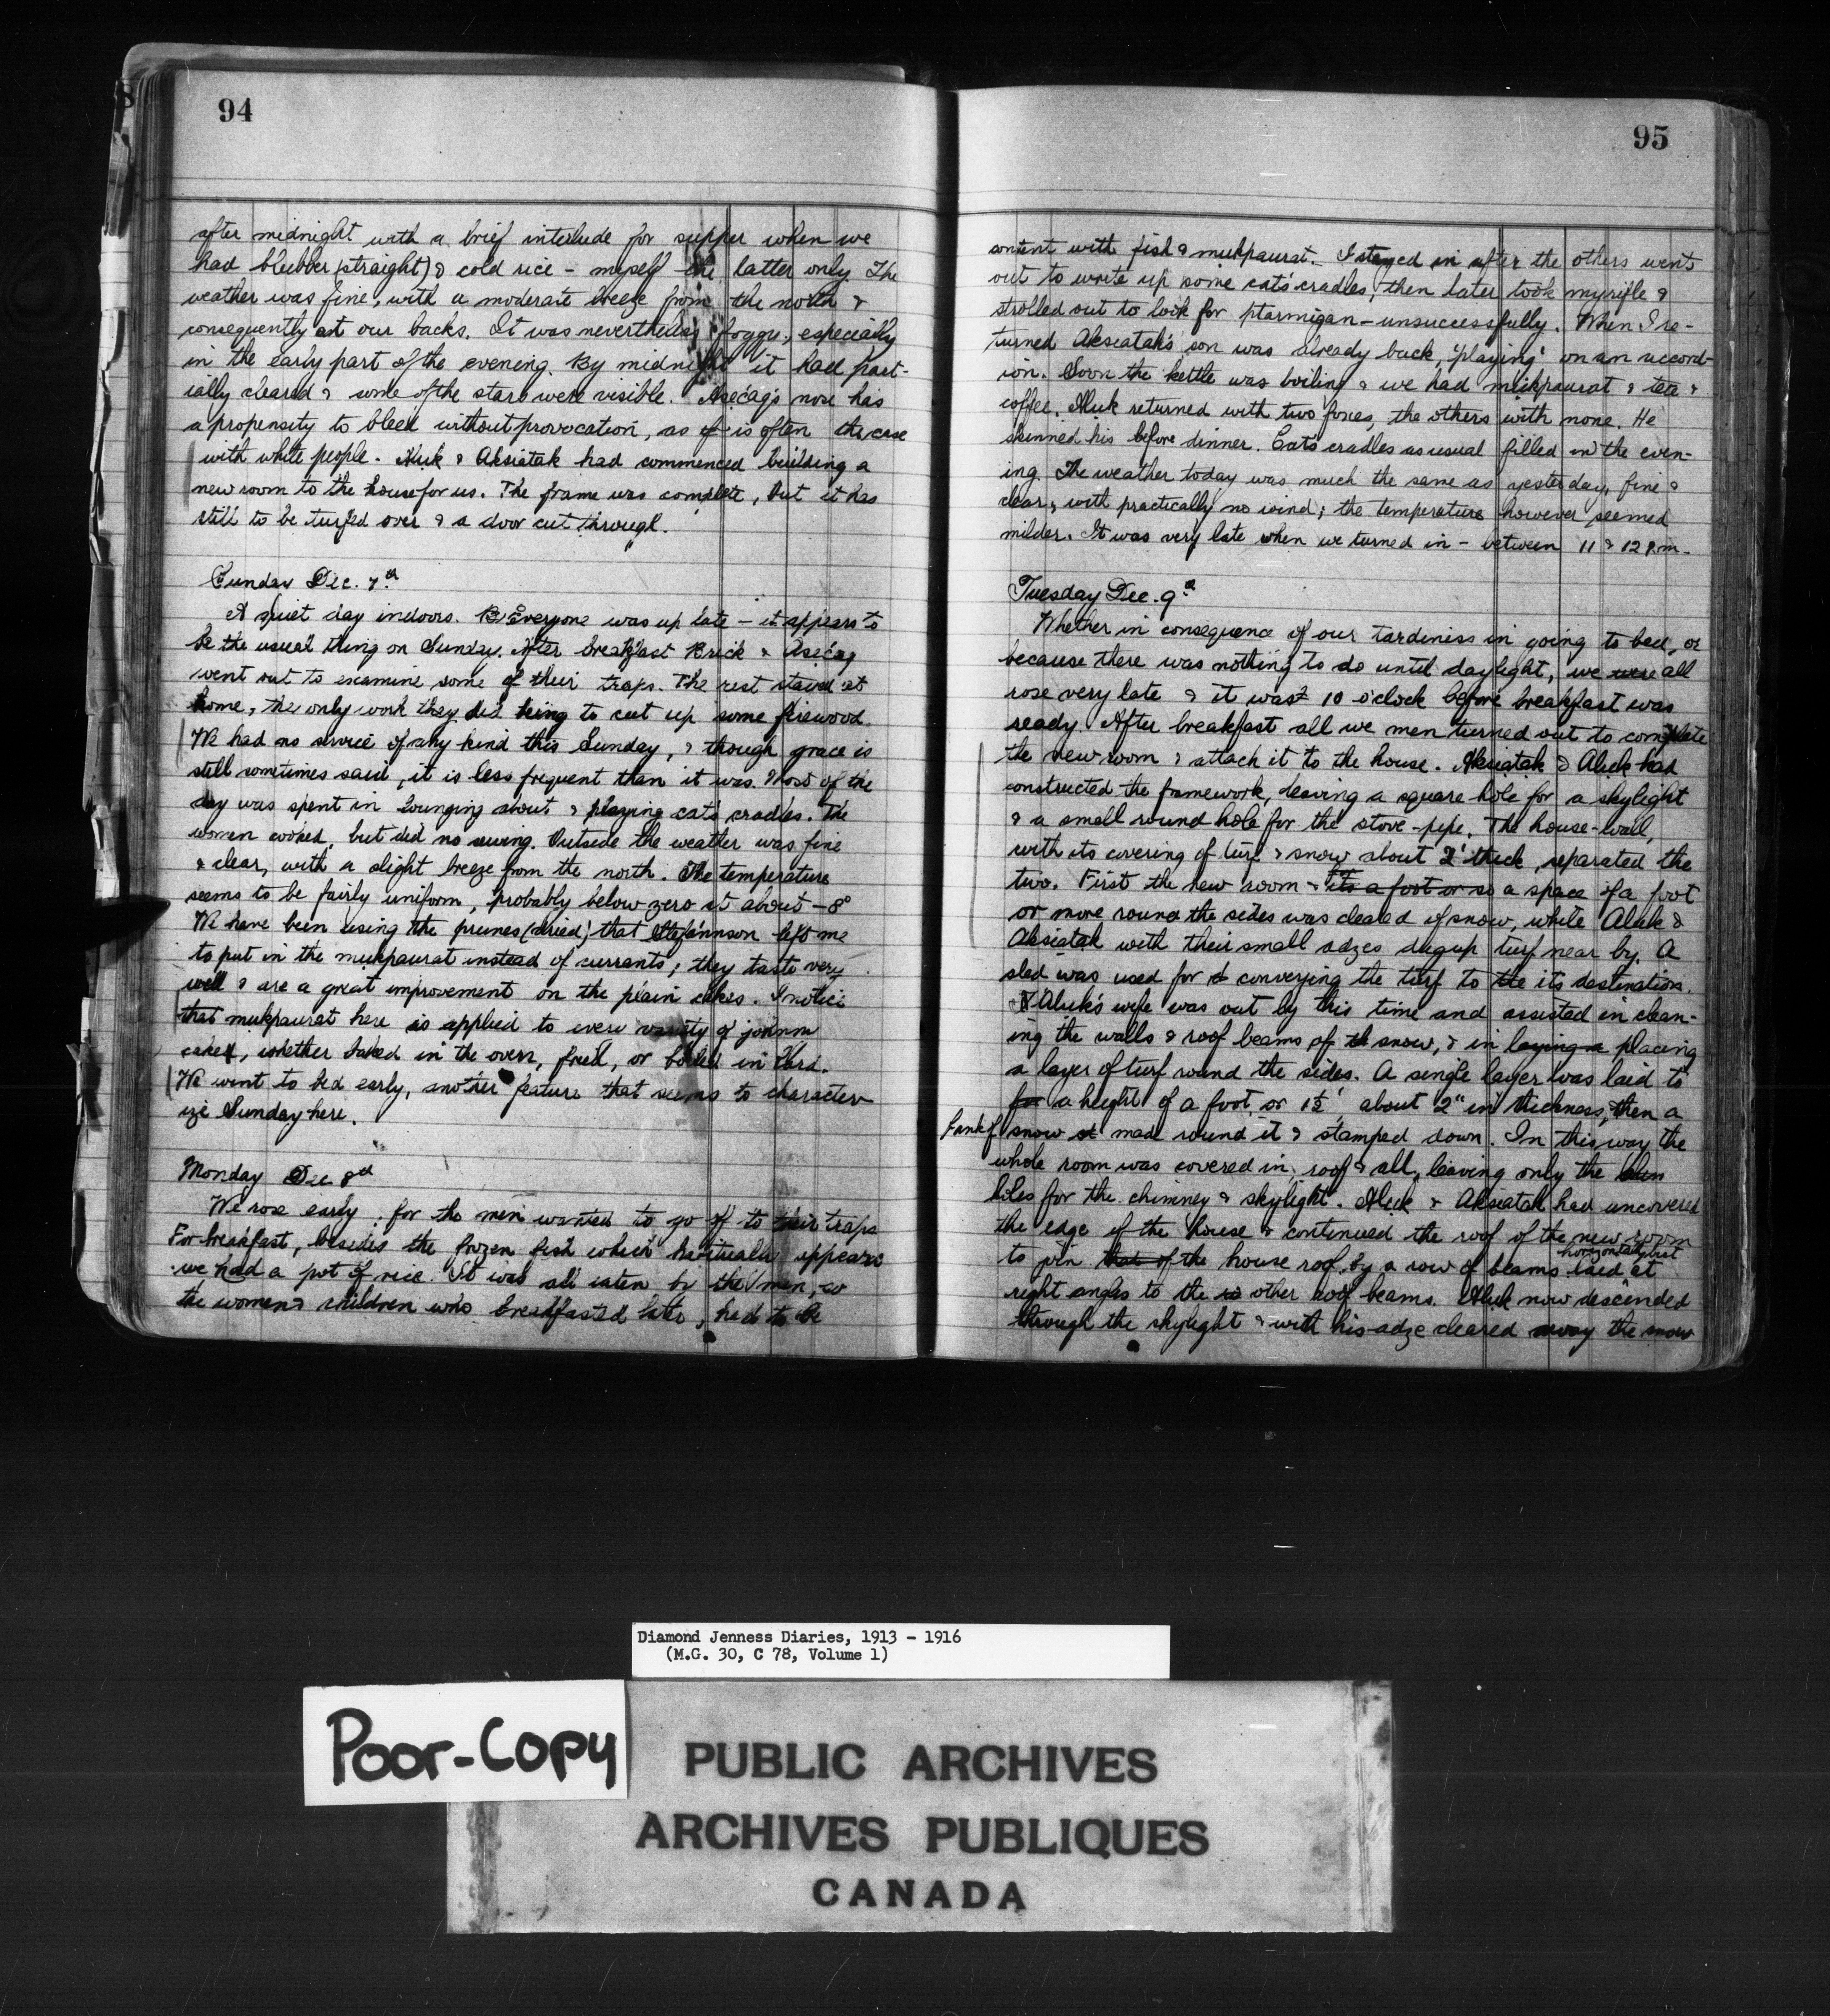 94
after midnight with a brief interlude for supper when we
had blubber (straight) & cold rice - myself the latter only. The
weather was fine, with a moderate breeze from the north &
consequently at our backs. It was nevertheless foggy, especially
in the early part of the evening. By midnight it had part-
ially cleared & some of the stars were visible. Asecaq's nose has
a propensity to bleed without provocation, as if is often the case
with white people. Aluk & Aksiatak had commenced building a
new room to the house for us. The frame was complete, but it has
still to be turfed over & a door cut through.
Sunday Dec. 7th
A quiet day indoors. Everyone was up late - it appears to
be the usual thing on Sunday. After breakfast Brick & Asecaq
went out to examine some of their traps. The rest stayed at
home, the only work they did being to cut up some firewood.
We had no service of any kind this Sunday, & though grace is
still sometimes said, it is less frequent than it was. Most of the
day was spent in lounging about & playing cat's cradles. The
women cooked, but did no sewing. Outside the weather was fine
& clear, with a slight breeze from the north. The temperature
seems to be fairly uniform, probably below zero at about -8°
We have been using the prunes (dried) that Stefánnson left me
to put in the mukpaurat instead of currants; they taste very
well & are a great improvement on the plain cakes. I notice
that mukpaurat here is applied to every variety of johnny
cake, whether baked in the oven, fried, or boiled in lard.
We went to bed early, another feature that seems to character
ize Sunday here.
Monday Dec 8th
We rose early, for the men wanted to go off to their traps
For breakfast, besides the frozen fish which habitually appears
we had a pot of rice. It was all eaten by the men, so
the women & children who breakfasted later, had to be
95
content with fish & mukpaurat. I stayed in after the others went
out to write up some cat's cradles, then later took my rifle &
strolled out to look for ptarmigan - unsuccessfully. When I re-
turned Akseatak's son was already back, 'playing' on an accord-
ion. Soon the kettle was boiling & we had mukpaurat & tea &
coffee. Aluk returned with two foxes, the others with none. He
skinned his before dinner. Cats cradles as usual filled in the even-
ing. The weather today was much the same as yesterday, fine &
clear, with practically no wind; the temperature however seemed
milder. It was very late when we turned in - between 11 & 12 p.m.
Tuesday Dec. 9th
Whether in consequence of our tardiness in going to bed, or
because there was nothing to do until daylight, we were all
rose very late & it was 10 o'clock before breakfast was
ready. After breakfast all we men turned out to complete
the new room & attach it to the house. Aksiatak & Aluk had
constructed the framework, leaving a square hole for a skylight
& a small round hole for the stove-pipe. The house-wall,
with its covering of turf & snow about 2' thick, separated the
two. First the new room & its a foot or so a space of a foot
or more round the sides was cleared of snow, while Aluk &
Aksiatak with their small adzes dug up turf near by. A
sled was used for conveying the turf to the its destination.
Aluk's wife was out by this time and assisted in clean-
ing the walls & roof beams of th snow, & in laying a placing
a layer of turf round the sides. A single layer was laid to
for a height of a foot, or 1½', about 2" in thickness, then a
bank of snow made round it & stamped down. In this way the
whole room was covered in, roof & all, leaving only the
holes for the chimney & skylight. Aluk & Aksiatak had uncovered
the edge of the house & continued the roof of the new room
to join that of the house roof, by a row of beams laid horizontally but at
right angles to the other roof beams. Aluk now descended
through the skylight & with his adze cleared away the snow
Diamond Jenness Diaries, 1913 - 1916
(M.G. 30, C 78, Volume 1)
Poor-Copy
PUBLIC ARCHIVES
ARCHIVES PUBLIQUES
CANADA